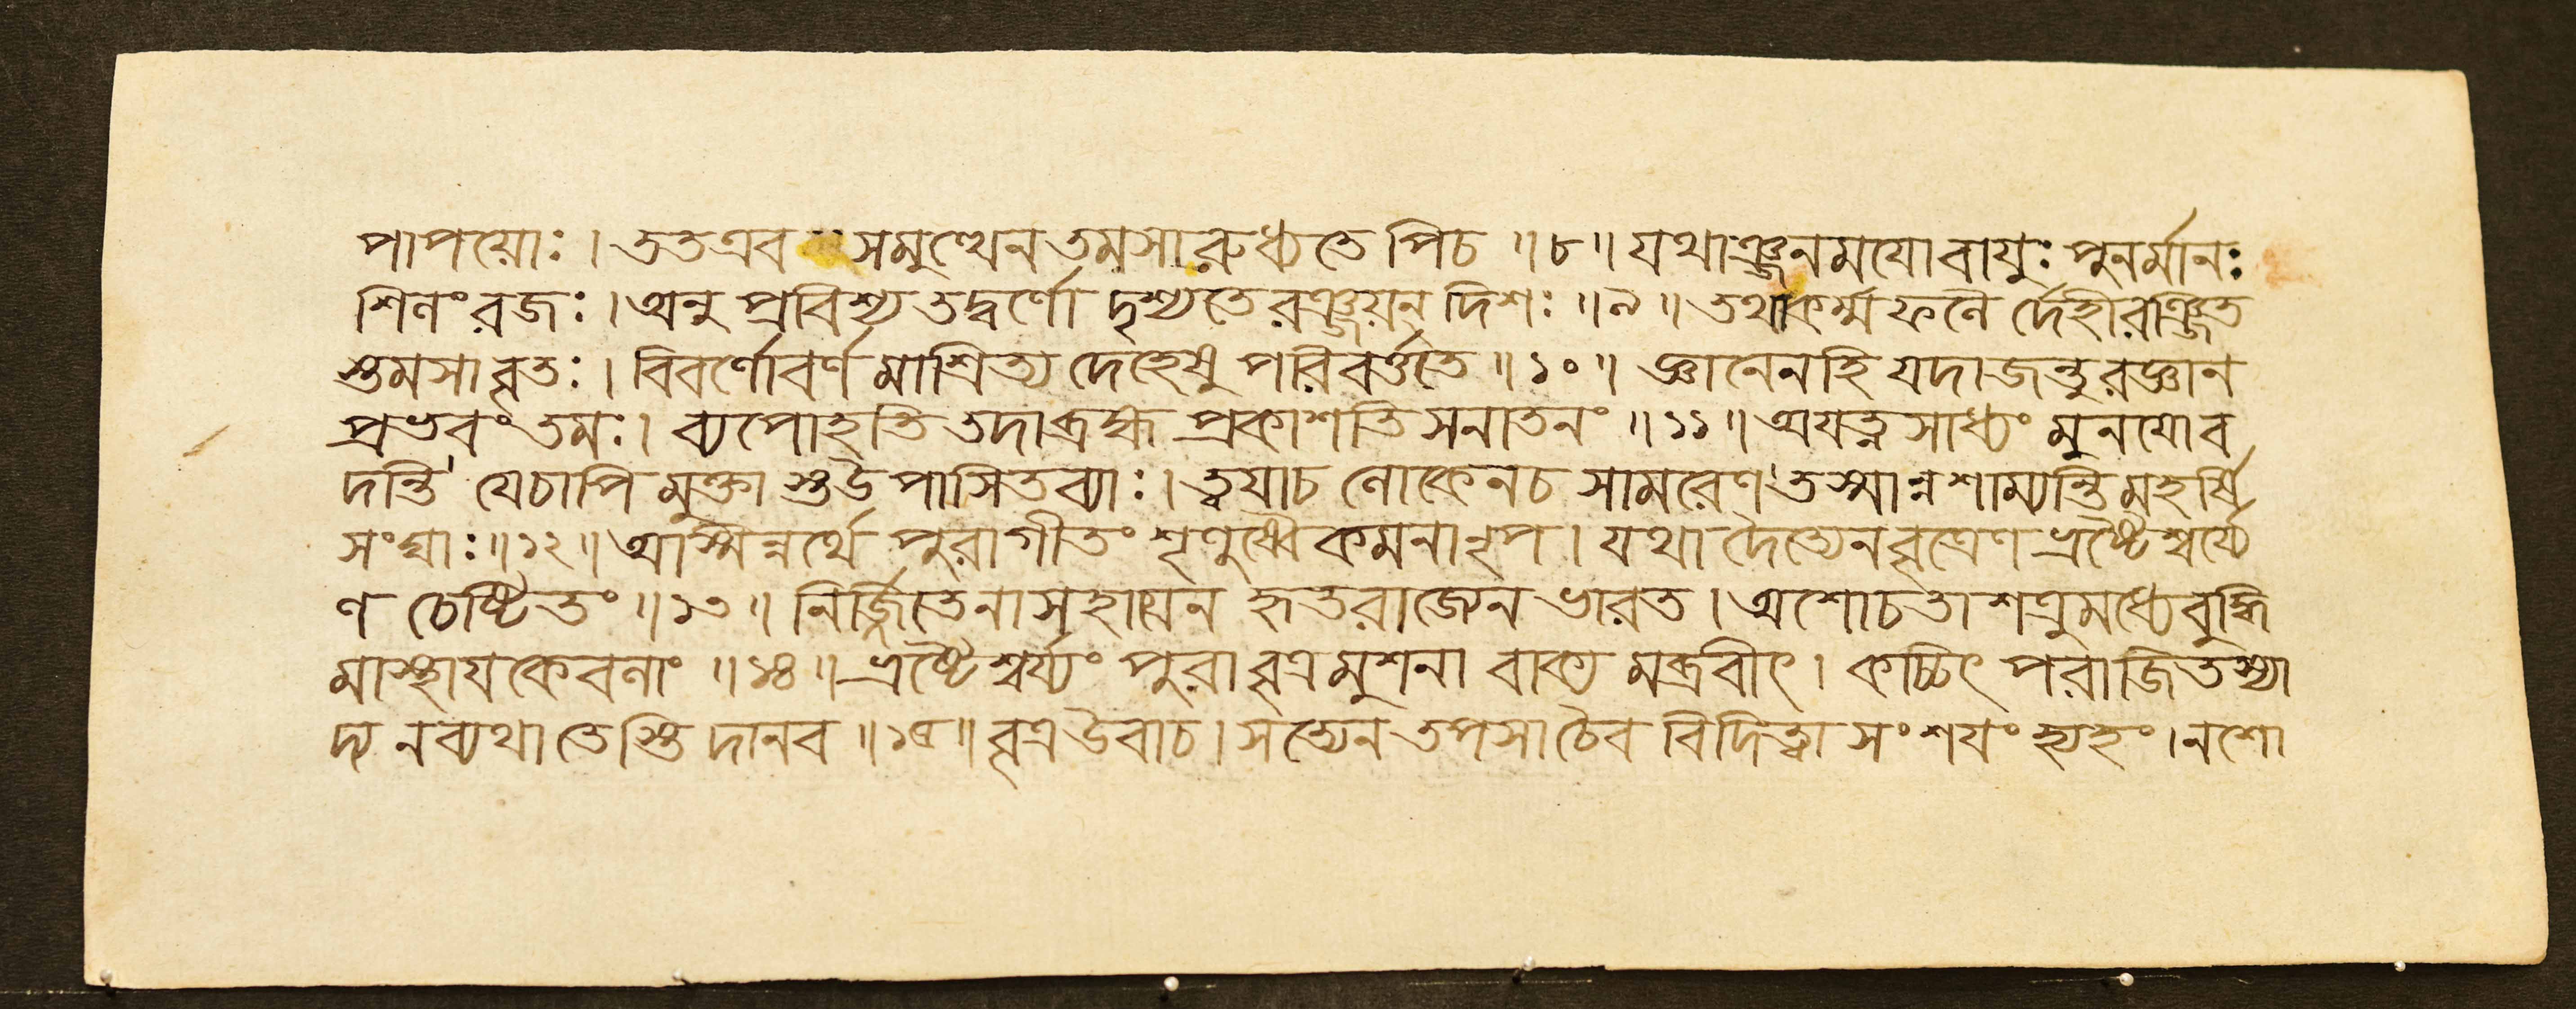 পাপয়োঃ। তত এব সমুত্থেন তমসা রুধ্যতেপিচ ॥৮॥ যথাঞ্জনময়োবায়ুঃ পুনর্মানঃ
শিলং রজঃ। অনুপ্রবিশ্য তদ্বর্ণো দৃশ্যতে রঞ্জয়ন্ দিশঃ ॥৯॥ তথা কর্ম্মফলৈ র্দেহী রঞ্জিত
স্তমসাবৃতঃ। বিবর্ণো বর্ণমাশ্রিত্য দেহেষু পরিবর্ত্ততে ॥১০॥ জ্ঞানেন হি যদা জন্তু রজ্ঞান
প্রভবং তমঃ। ব্যপোহতি তদা ব্রহ্ম প্রকাশতি সনাতনং ॥১১॥ অযত্নসাধ্যং মুনয়ো ব
দন্তি যেচাপি মুক্তাস্তউপাসিতব্যাঃ। ত্বয়াচ লোকেনচ সামরেণ তস্মান্নশাম্যন্তি মহর্ষি
সংঘাঃ ॥১২॥ অস্মিন্নর্থে পুরা গীতং শৃণুষ্বৈকমনা নৃপ। যথা দৈত্যেন বৃত্রেণ ভ্রষ্টৈশ্বর্য্যে
ণ চেষ্টিতং ॥১৩॥ নির্জ্জিতেনাসহায়েন হৃতরাজ্যেন ভারত। অশোচতা শত্রুমধ্যে বুদ্ধি
মাস্থায় কেবলাং ॥১৪॥ ভ্রষ্টৈশ্বর্য্যং পুরা বৃত্রমুশনা বাক্য মব্রবীৎ। কচ্চিৎ পরাজিতস্যা
দ্য নব্যথা তেস্তি দানব ॥১৫॥ বৃত্র উবাচ। সত্যেন তপসা চৈব বিদিত্বা সংশয়ং হ্যহং। নশো